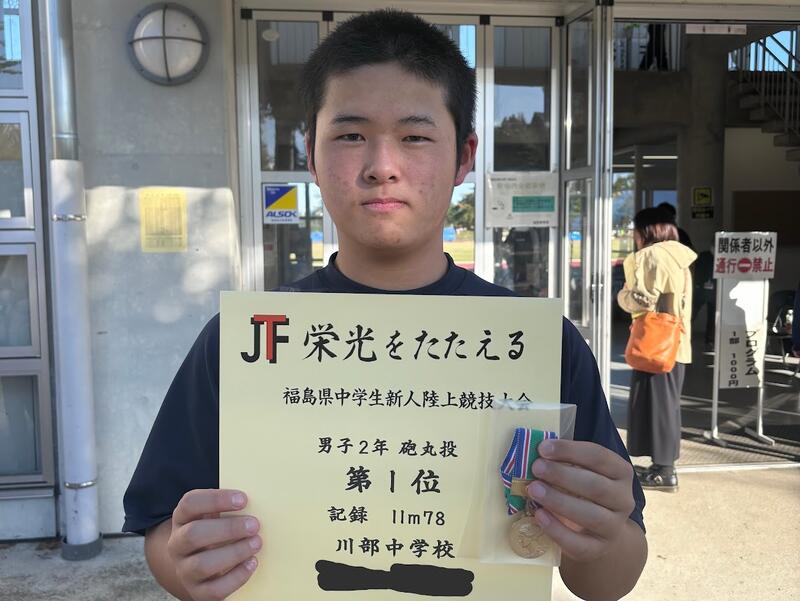 JTF 栄光をたたえる
福島県中学生新人陸上競技大会
男子2年 砲丸投
第1位
記録 11m78
川部中学校
ALSOK
関係者以外
通行禁止
プログラム
1部 1000円